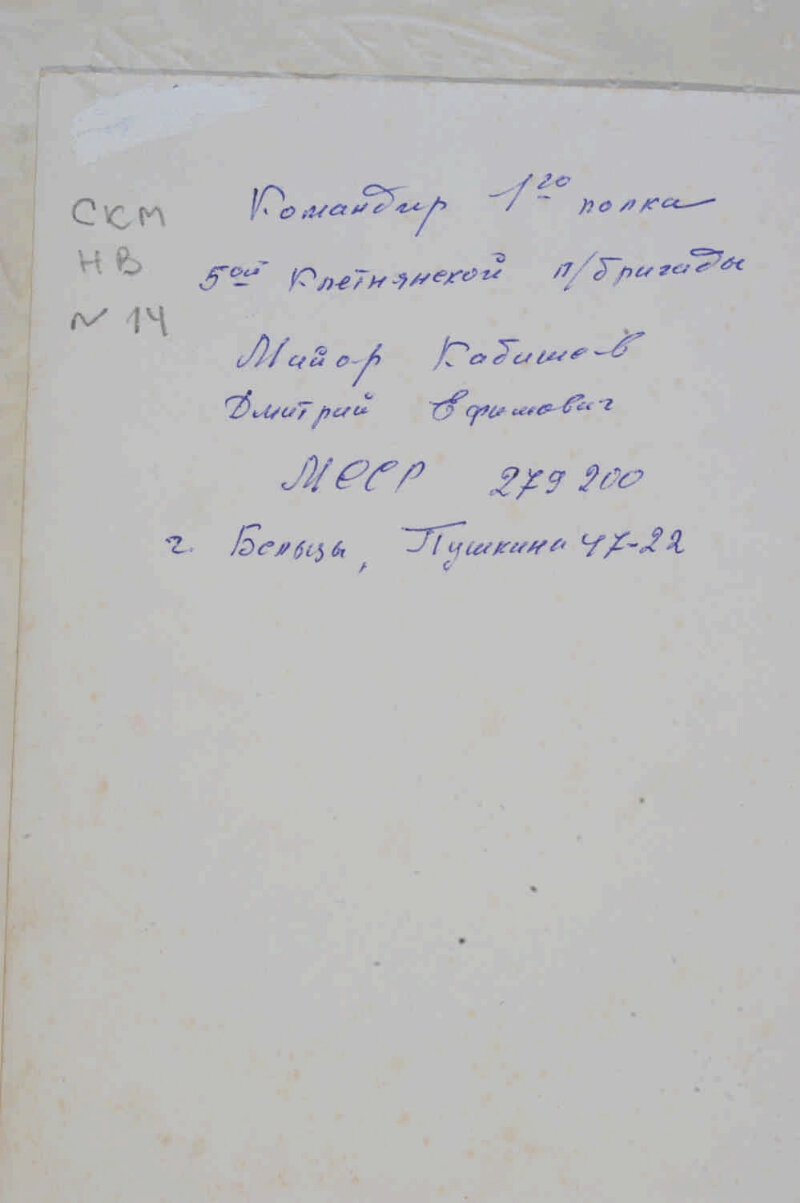 СКМ
НВ
N 14
Командир 1го полка
5ой Клетнянской п/бригады
Майор Кабишев
Дмитрий Ефимович
МССР 279 200
г. Бельцы, Пушкина 47-22